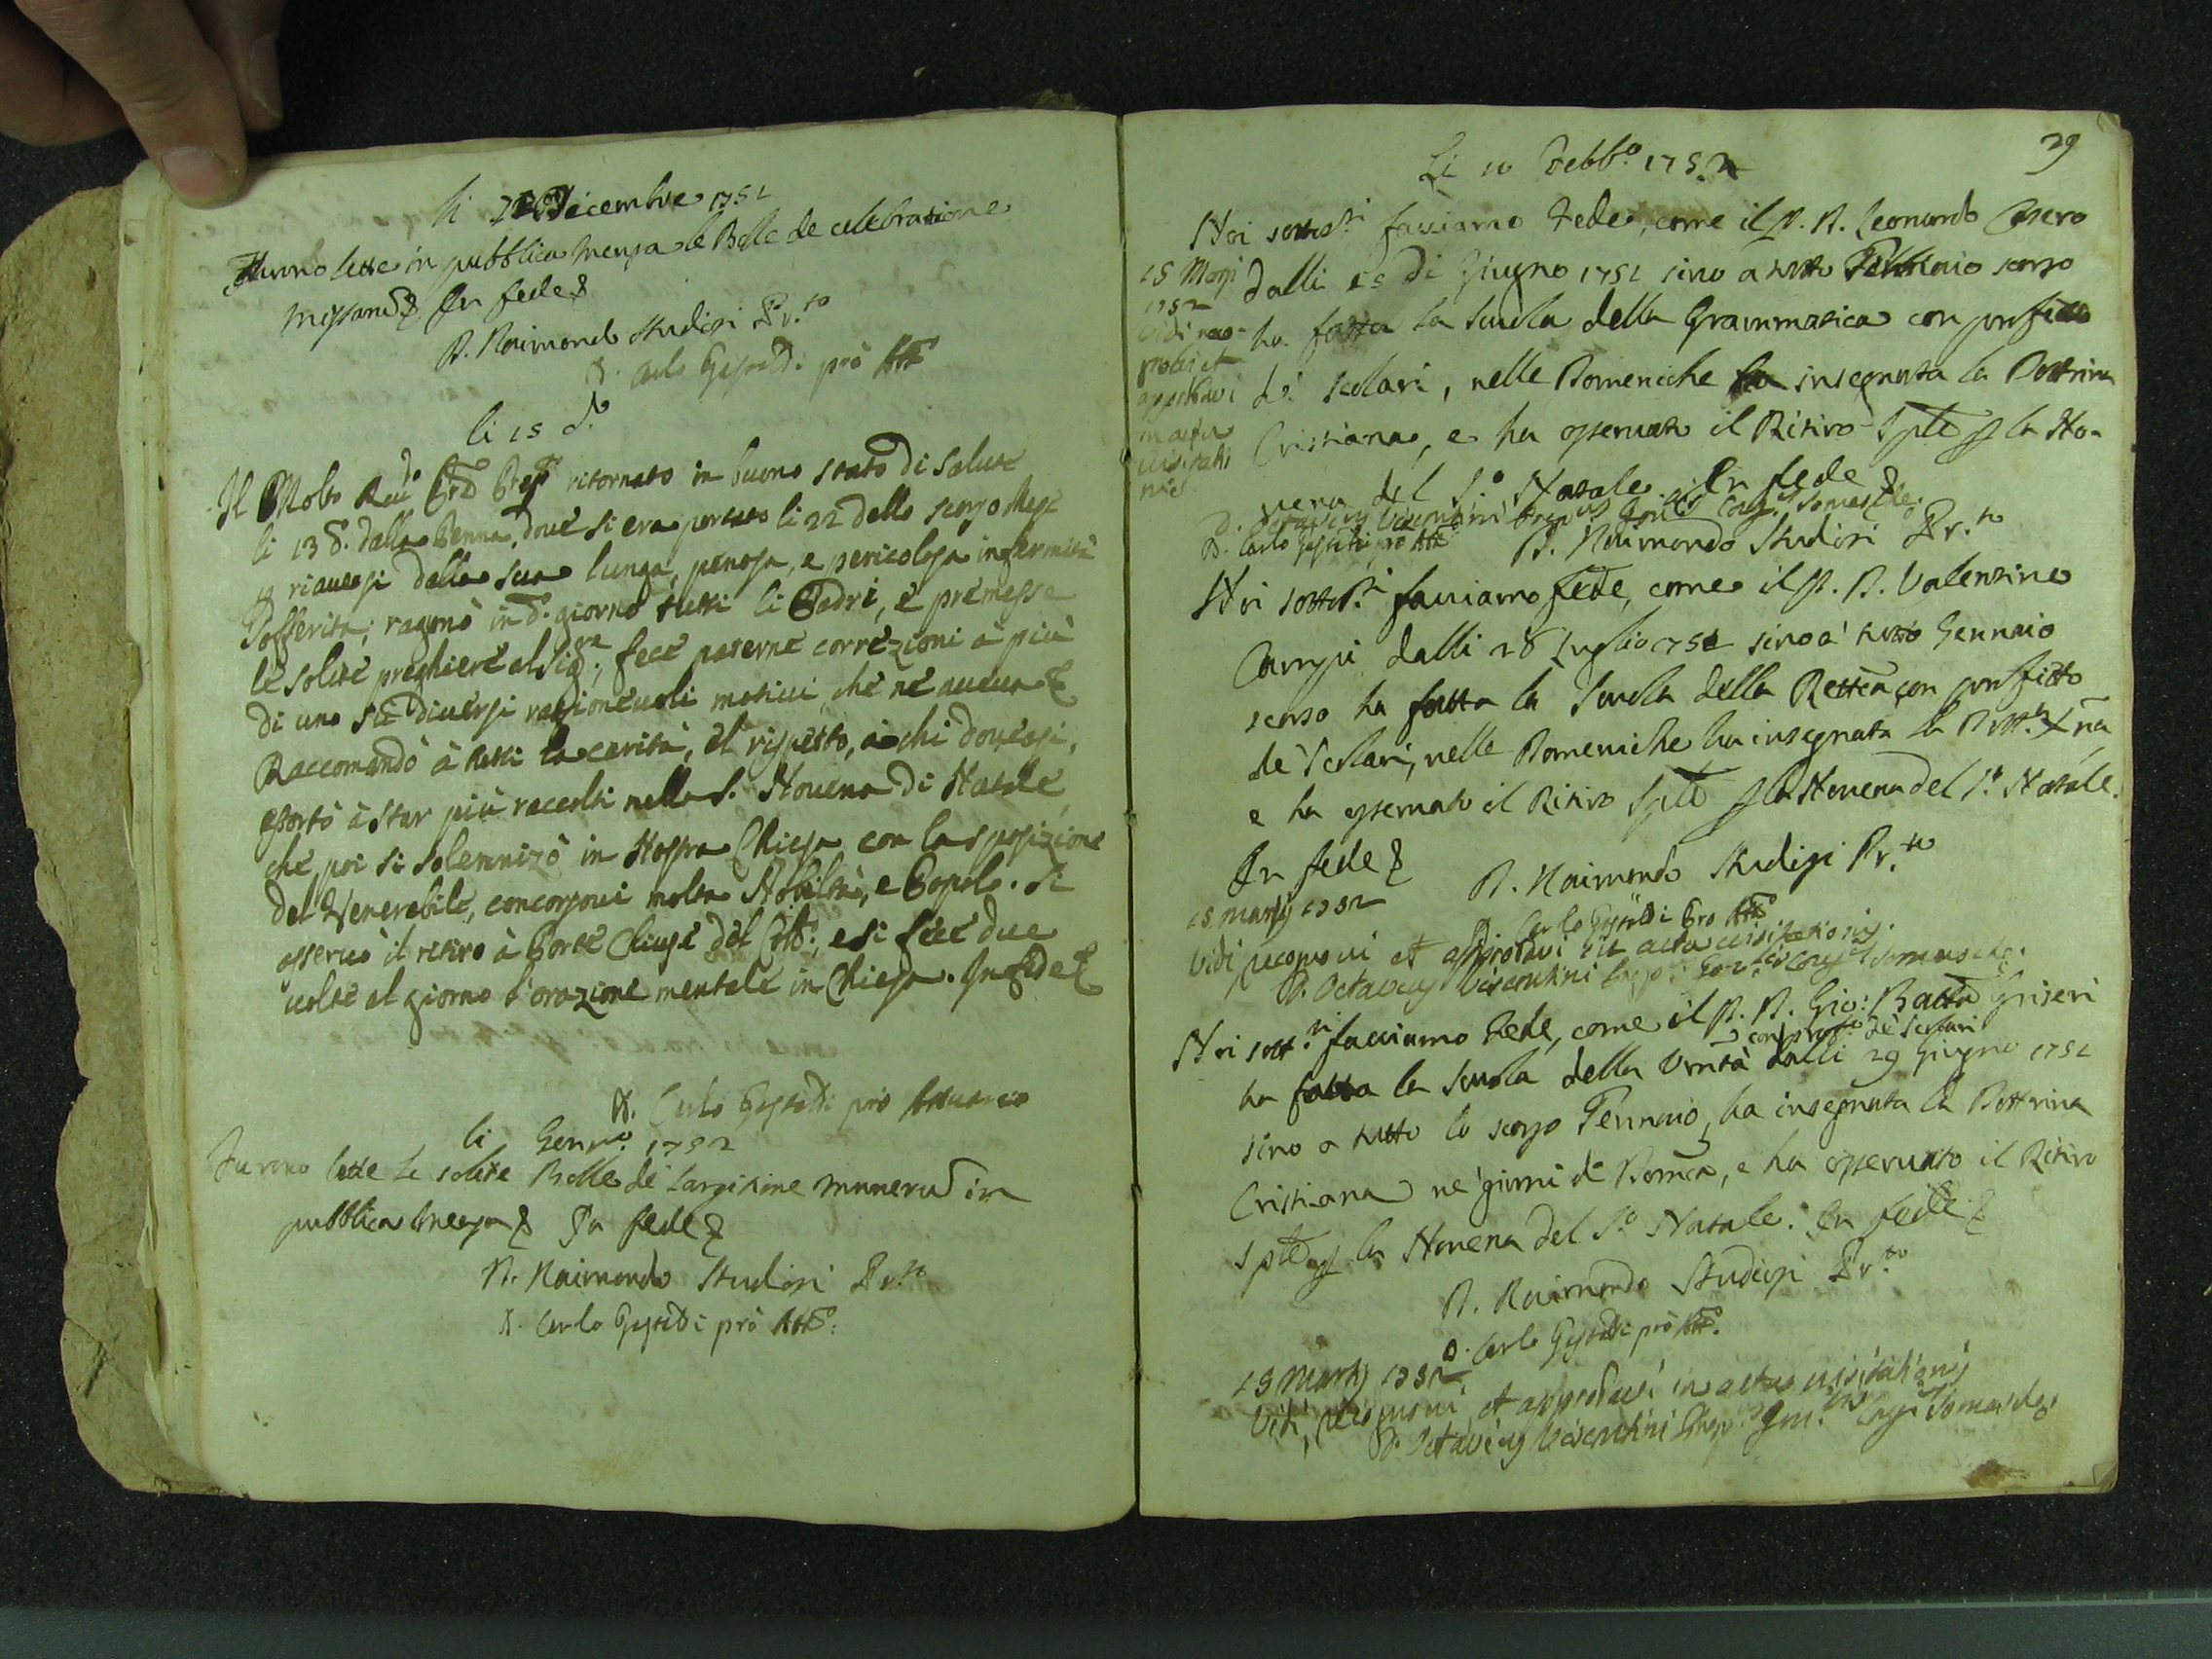 li Dicembre 1751
Furono lette in pubblica mensa le Bolle de celebratione
missarū & In fede &
D. Raimondo Studiosi Pr.to
D. Carlo Gestaldi prò Att.o
li 15 d.o
Il Molto Reu.do Prē Prep.to ritornato in buono stato di salute
li 13 d. dalla Penna, dove si era portato li 22 dello scorso Mese
p riauersi della sua lunga, penosa, e pericolosa infermità
sofferita; ragunò in d.o giorno tutti li Padri, e premesse
le solite preghiere al Sig.re, fece paterne correzioni à più
di uno p diuersi ragioneuoli motiui, che ne aueua &
Raccomandò à tutti la carità, el rispetto, à chi douesi,
esortò à star più raccolti nella S. Nouena di Natale,
che poi si solennizò in Nostra Chiesa con la sposizione
del Venerabile, concorsoui molta Nobiltà, e Popolo. Si
osseruò il retiro à Porte Chiuse del Coll.o; e si fece due
uolte al giorno l'orazione mentale in Chiesa. In fede &
D. Carlo Gestaldi prò Attuario
li Genn.o 1752
Furono lette le solite Bolle de largitione munerū in
pubblica mensa & In fede &
D. Raimondo Studiosi Pr.to
D. Carlo Gestaldi prò Att.o:
29
Li 10 Febb.o 1752
Noi sottos.ti facciamo Fede, come il P. D. Leonardo Assero
dalli 15 di Giugno 1751 sino a tutto Febbraio scorso
ha fatta la Scuola della Grammatica con profitto
de' scolari, nelle Domeniche ha insegnata la Dottrina
Cristiana, e ha osseruato il Ritiro Splē p la No-
uena del S.o Natale. In fede &
15 Marzi
1752
vidi reco-
gnoui et
approbaui
in actu
uisitatio
nis
D. Octavius Visconti Prepus Gnlis Cong. Somaschae
D. Carlo Gestaldi prò Att.o
D. Raimondo Studiosi Pr.to
Noi sottos.ti facciamo fede, come il P. D. Valentino
Campi dalli 28 Luglio 1751 sino a' tutto Gennaio
scorso ha fatta la Scuola della Rettca con profitto
de' Scolari, nelle Domeniche ha insegnata la Dott.a Xna,
e ha osseruato il Ritiro Splē p la Nouena del S.o Natale.
In fede &
D. Raimondo Studiosi Pr.to
D. Carlo Gestaldi Pro Att.o
15 Martij 1752
Vidi, recognoui et approbaui in actu uisitationis.
D. Octavius Viscontini Prep.s Gen.lis Cong.s Somaschae.
Noi sott.ti facciamo Fede, come il P. D. Gio: Batta Griseri
con prof.o de' scolari
ha fatta la Scuola della Vmtà dalli 29 Giugno 1751
sino a tutto lo scorso Gennaio, ha insegnata la Dottrina
Cristiana ne' giorni di Domca, e ha osseruato il Ritiro
Splē p la Nouena del S.o Natale. In fede &
D. Raimondo Studiosi Pr.to
D. Carlo Gestaldi prò Att.o.
15 Martij 1752
Vidi, recognoui, et approbaui in actu uisitationis
D. Octavius Viscontini Prep.s Gen.lis Cong. Somaschae